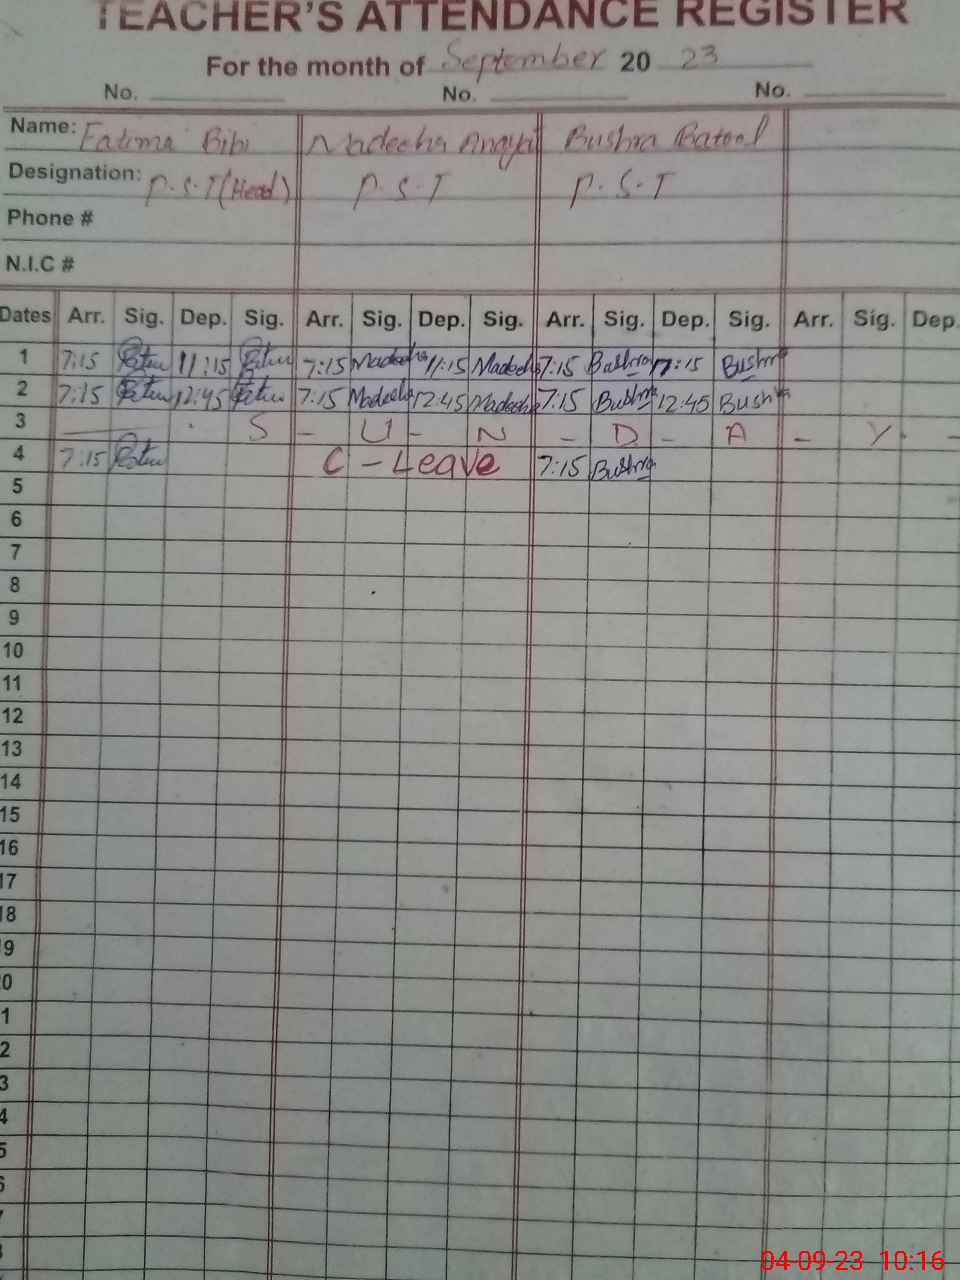 TEACHER'S ATTENDANCE REGISTER
For the month of September 20 23
No. No. No.
Name: Fatima Bibi Madeeha Anayat Bushra Batool
Designation: P.S.T (Head) P.S.T P.S.T
Phone #
N.I.C #
Dates Arr. Sig. Dep. Sig. Arr. Sig. Dep. Sig. Arr. Sig. Dep. Sig. Arr. Sig. Dep.
1 7:15 11:15 7:15 Madeeha 11:15 Madeeha 7:15 Bushra 11:15 Bushra
2 7:15 12:45 7:15 Madeeha 12:45 Madeeha 7:15 Bushra 12:45 Bushra
3 S - U - N - D - A - Y -
4 7:15 C - Leave 7:15 Bushra
5
6
7
8
9
10
11
12
13
14
15
16
17
18
9
0
1
2
3
4
5
6
7
8
04-09-23 10:16